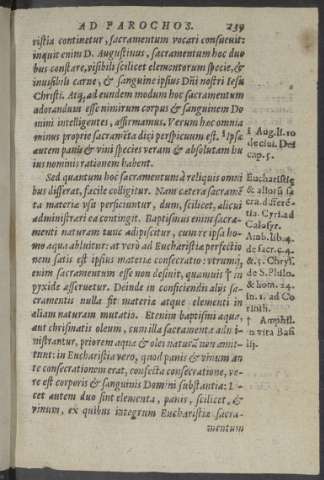 AD PAROCHOS. 239
ristia continetur, sacramentum vocari consueuit:
inquit enim D. Augustinus, sacramentum hoc duo
bus constare, visibili scilicet elementorum specie, &
inuisibili carne, & sanguine ipsius Dñi nostri Iesu
Christi. Atq; ad eundem modum hoc sacramentum
adorandum esse nimirum corpus & sanguinem Do
mini intelligentes, affirmamus. Verum hæc omnia
minus proprie sacramēta dici perspicuum est. ſ Ipsa
autem panis & vini species veram & absolutam hu
ius nominis rationem habent.
ſ Aug. li. 10
de ciui. Dei
cap. 5.
Sed quantum hoc sacramentum à reliquis omni
bus differat, facile colligitur. Nam cætera sacramē
ta materiæ vsu perficiuntur, dum, scilicet, alicui
administrari ea contingit. Baptismus enim sacra-
menti naturam tunc adipiscitur, cum re ipsa ho-
mo aqua abluitur: at verò ad Eucharistiæ perfectio
nem satis est ipsius materiæ consecratio: vtrumq;
enim sacramentum esse non desinit, quamuis † in
pyxide asseruetur. Deinde in conficiendis alijs sa-
cramentis nulla fit materiæ atque elementi in
aliam naturam mutatio. Etenim baptismi aqua,
aut chrismatis oleum, cum illa sacramenta admi-
nistrantur, priorem aquæ & olei naturā non amit
tunt: in Eucharistia vero, quod panis & vinum an
te consecrationem erat, confecta consecratione, ve-
re est corporis & sanguinis Domini substantia: Li-
cet autem duo sint elementa, panis, scilicet, &
vinum, ex quibus integrum Eucharistiæ sacra-
mentum
Eucharistię
& altorū sa
cra. differē-
tia. Cyri. ad
Calosyr.
Amb. lib. 4.
de sacr. c. 4.
& 5. Chrys.
de S. Philo.
& hom. 24.
in. 1. ad Co
rinth.
† Amphil.
in vita Basi
lij.